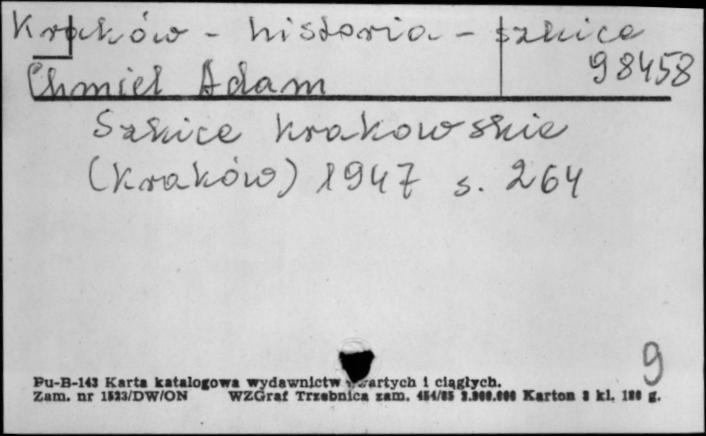 Kraków - historia - szkice
98458
Chmiel Adam
Szkice krakowskie
(Kraków) 1947 s. 264
9
Pu-B-143 Karta katalogowa wydawnictw zwartych i ciągłych.
Zam. nr 1523/DW/ON WZGraf Trzebnica zam. 454/85 Karton 3 kl. g.